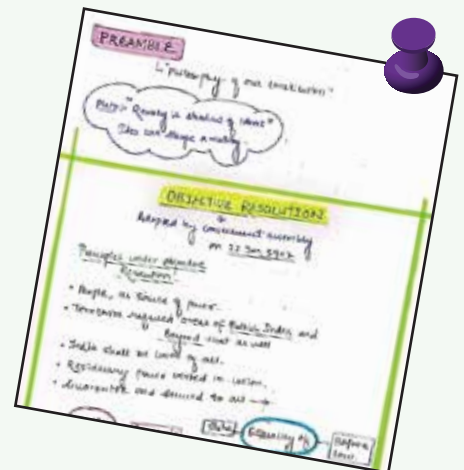 PREAMBLE
"philosophy of our constitution"
Plato: "Reality is shadow of ideas"
Idea can shape a reality
OBJECTIVE RESOLUTION
Adopted by constituent assembly
on 22 Jan 1947
Principles under objective
Resolution:
• People, as source of power.
• Territories required areas of British India and
Beyond that as well
• India shall be land of all.
• Residuary power vested in union.
• Guarantee and secured to all →
Equality of
Before
law